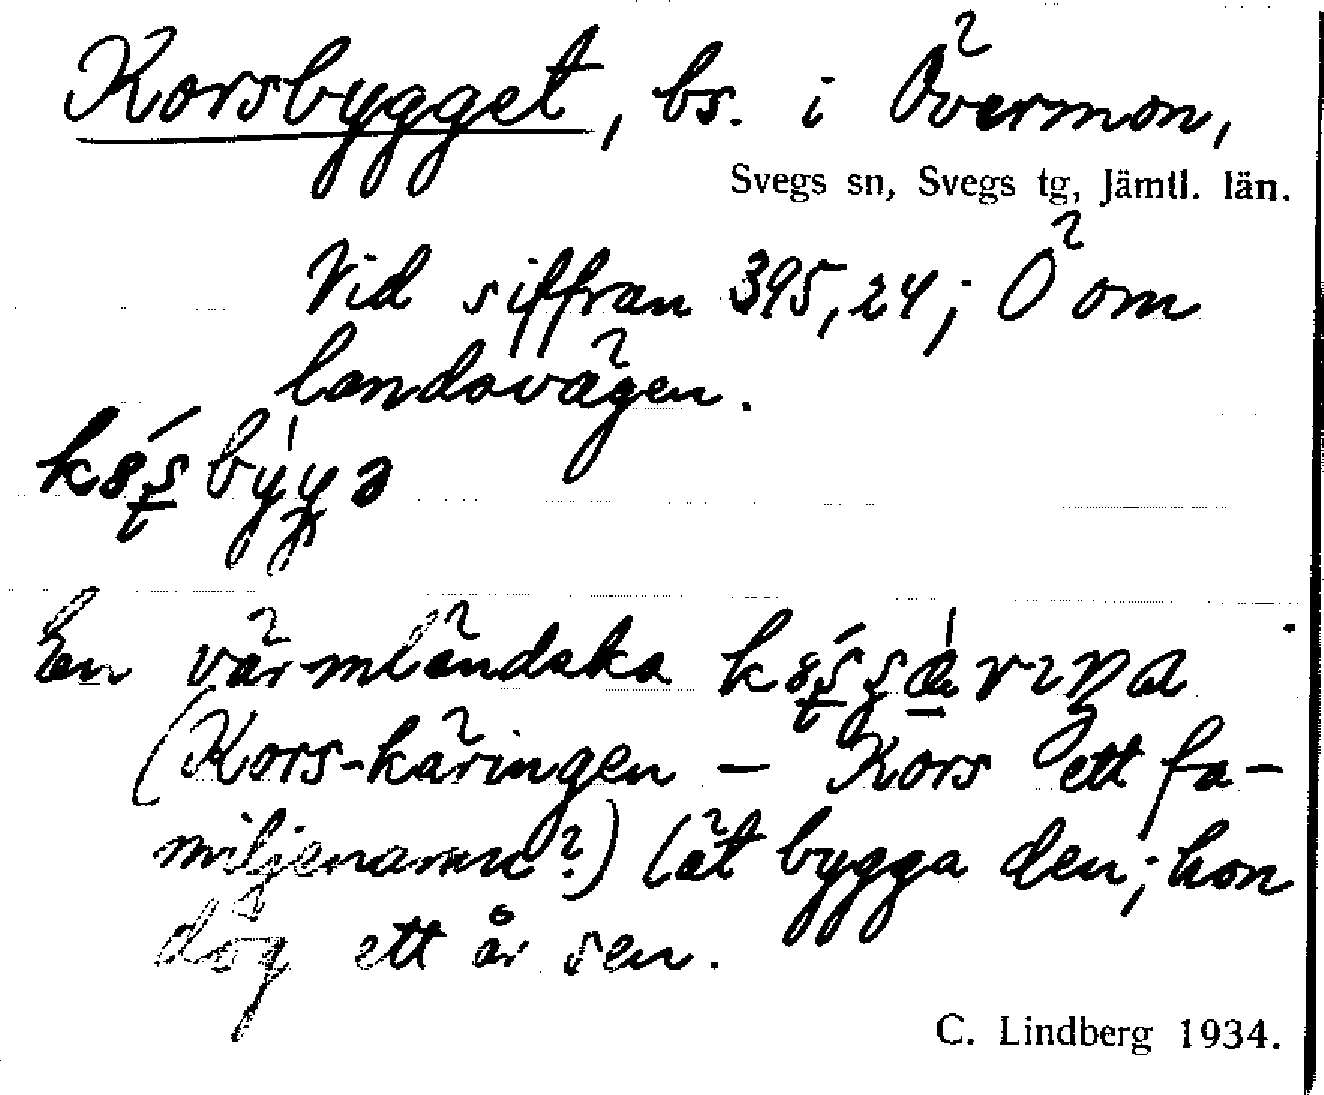 Korsbygget, bs. i Övermon,
Svegs sn, Svegs tg, Jämtl. län.
Vid siffran 395,24; Ö om
landsvägen.
En värmländska
(Kors-käringen – Kors ett fa-
miljenamn?) lät bygga den; hon
dog ett år sen.
C. Lindberg 1934.